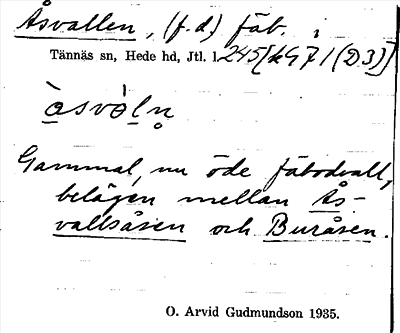 Åsvallen, (f.d.) fäb.
Tännäs sn, Hede hd, Jtl. l. 245 [k971 (D3)]
åsvàln̥
Gammal, nu öde fäbodvall,
belägen mellan Ås-
vallsåsen och Buråsen.
O. Arvid Gudmundson 1935.